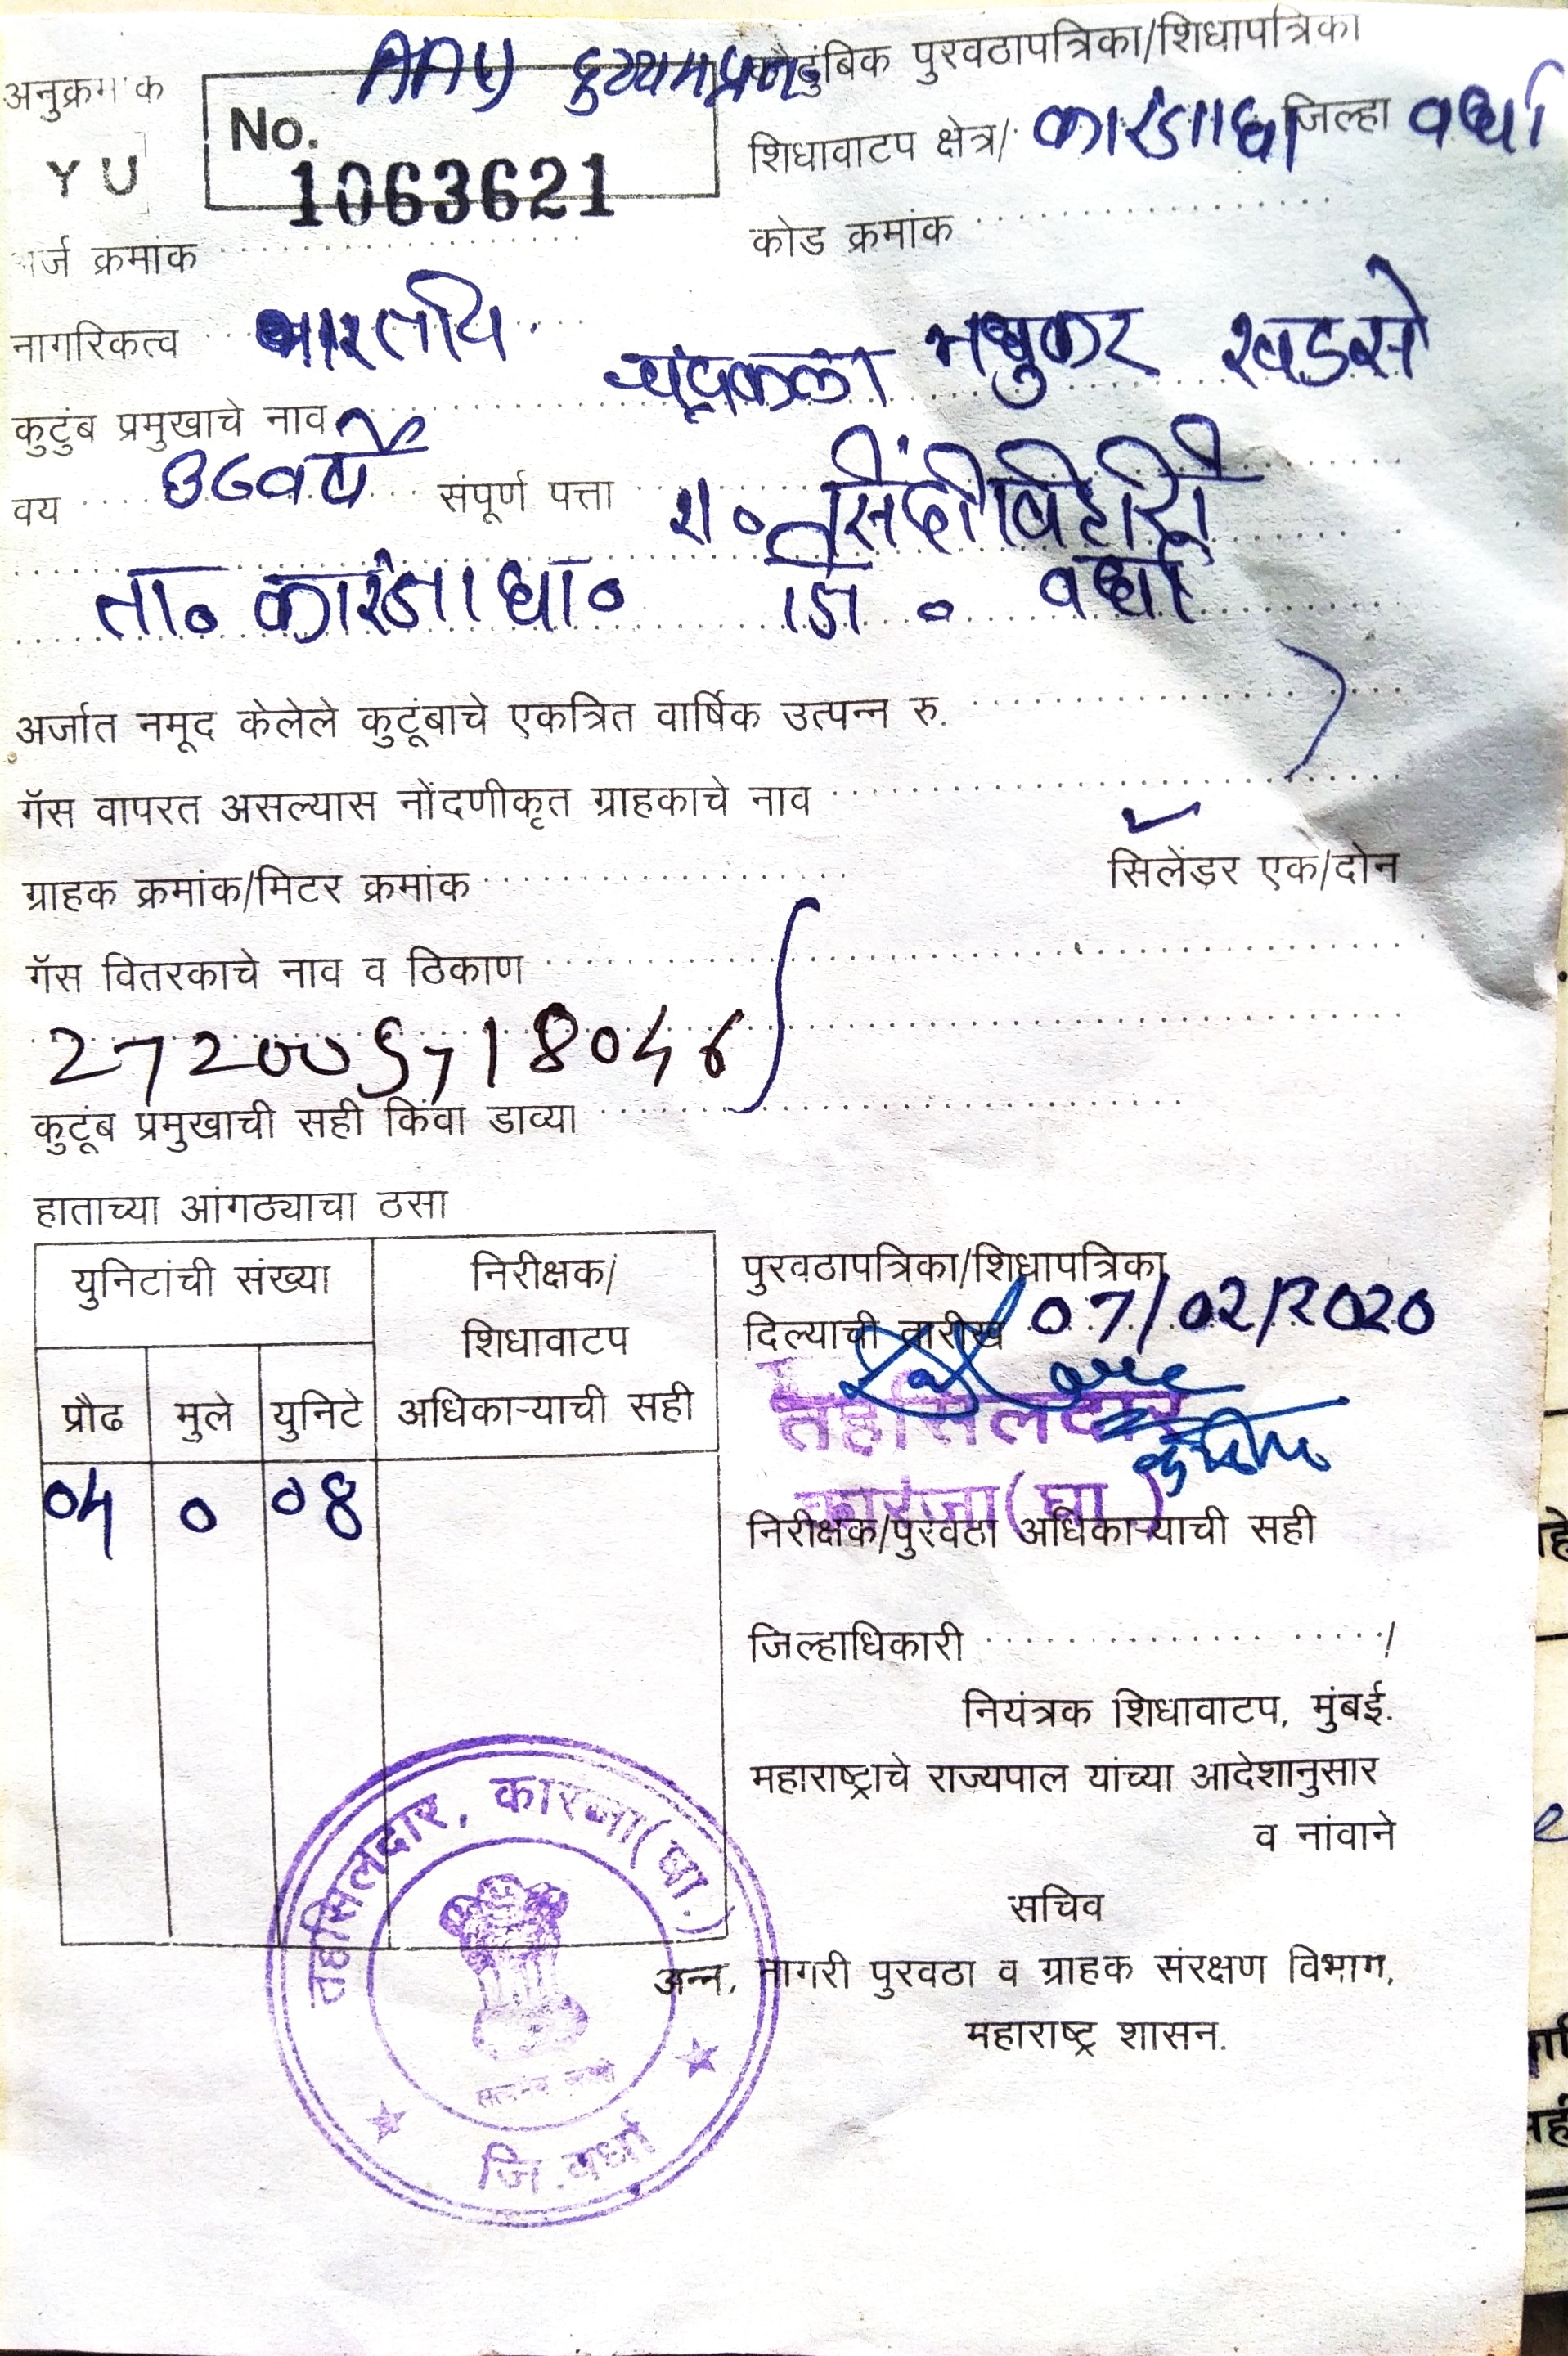 AAY दुय्यमप्रत
कौटुंबिक पुरवठापत्रिका/शिधापत्रिका
अनुक्रमांक
YU
No. 1063621
शिधावाटप क्षेत्र/ कारंजा घा जिल्हा वर्धा
अर्ज क्रमांक
कोड क्रमांक
नागरिकत्व भारतीय
कुटुंब प्रमुखाचे नाव चंद्रकला मधुकर खडसे
वय वर्षे संपूर्ण पत्ता रा० सिंदीविहीरी
ता० कारंजा घा० जि० वर्धा
अर्जात नमूद केलेले कुटूंबाचे एकत्रित वार्षिक उत्पन्न रु.
गॅस वापरत असल्यास नोंदणीकृत ग्राहकाचे नाव
ग्राहक क्रमांक/मिटर क्रमांक सिलेंडर एक/दोन
गॅस वितरकाचे नाव व ठिकाण
कुटूंब प्रमुखाची सही किंवा डाव्या
हाताच्या आंगठ्याचा ठसा
युनिटांची संख्या
निरीक्षक/
शिधावाटप
अधिकाऱ्याची सही
प्रौढ मुले युनिटे
०५ ० ०8
पुरवठापत्रिका/शिधापत्रिका
दिल्याची तारीख 07/02/2020
तहसिलदार
कारंजा (घा.)
निरीक्षक/पुरवठा अधिकाऱ्याची सही
जिल्हाधिकारी /
नियंत्रक शिधावाटप, मुंबई.
महाराष्ट्राचे राज्यपाल यांच्या आदेशानुसार
व नांवाने
सचिव
अन्न, नागरी पुरवठा व ग्राहक संरक्षण विभाग,
महाराष्ट्र शासन.
तहसिलदार, कारंजा (घा.)
जि. वर्धा